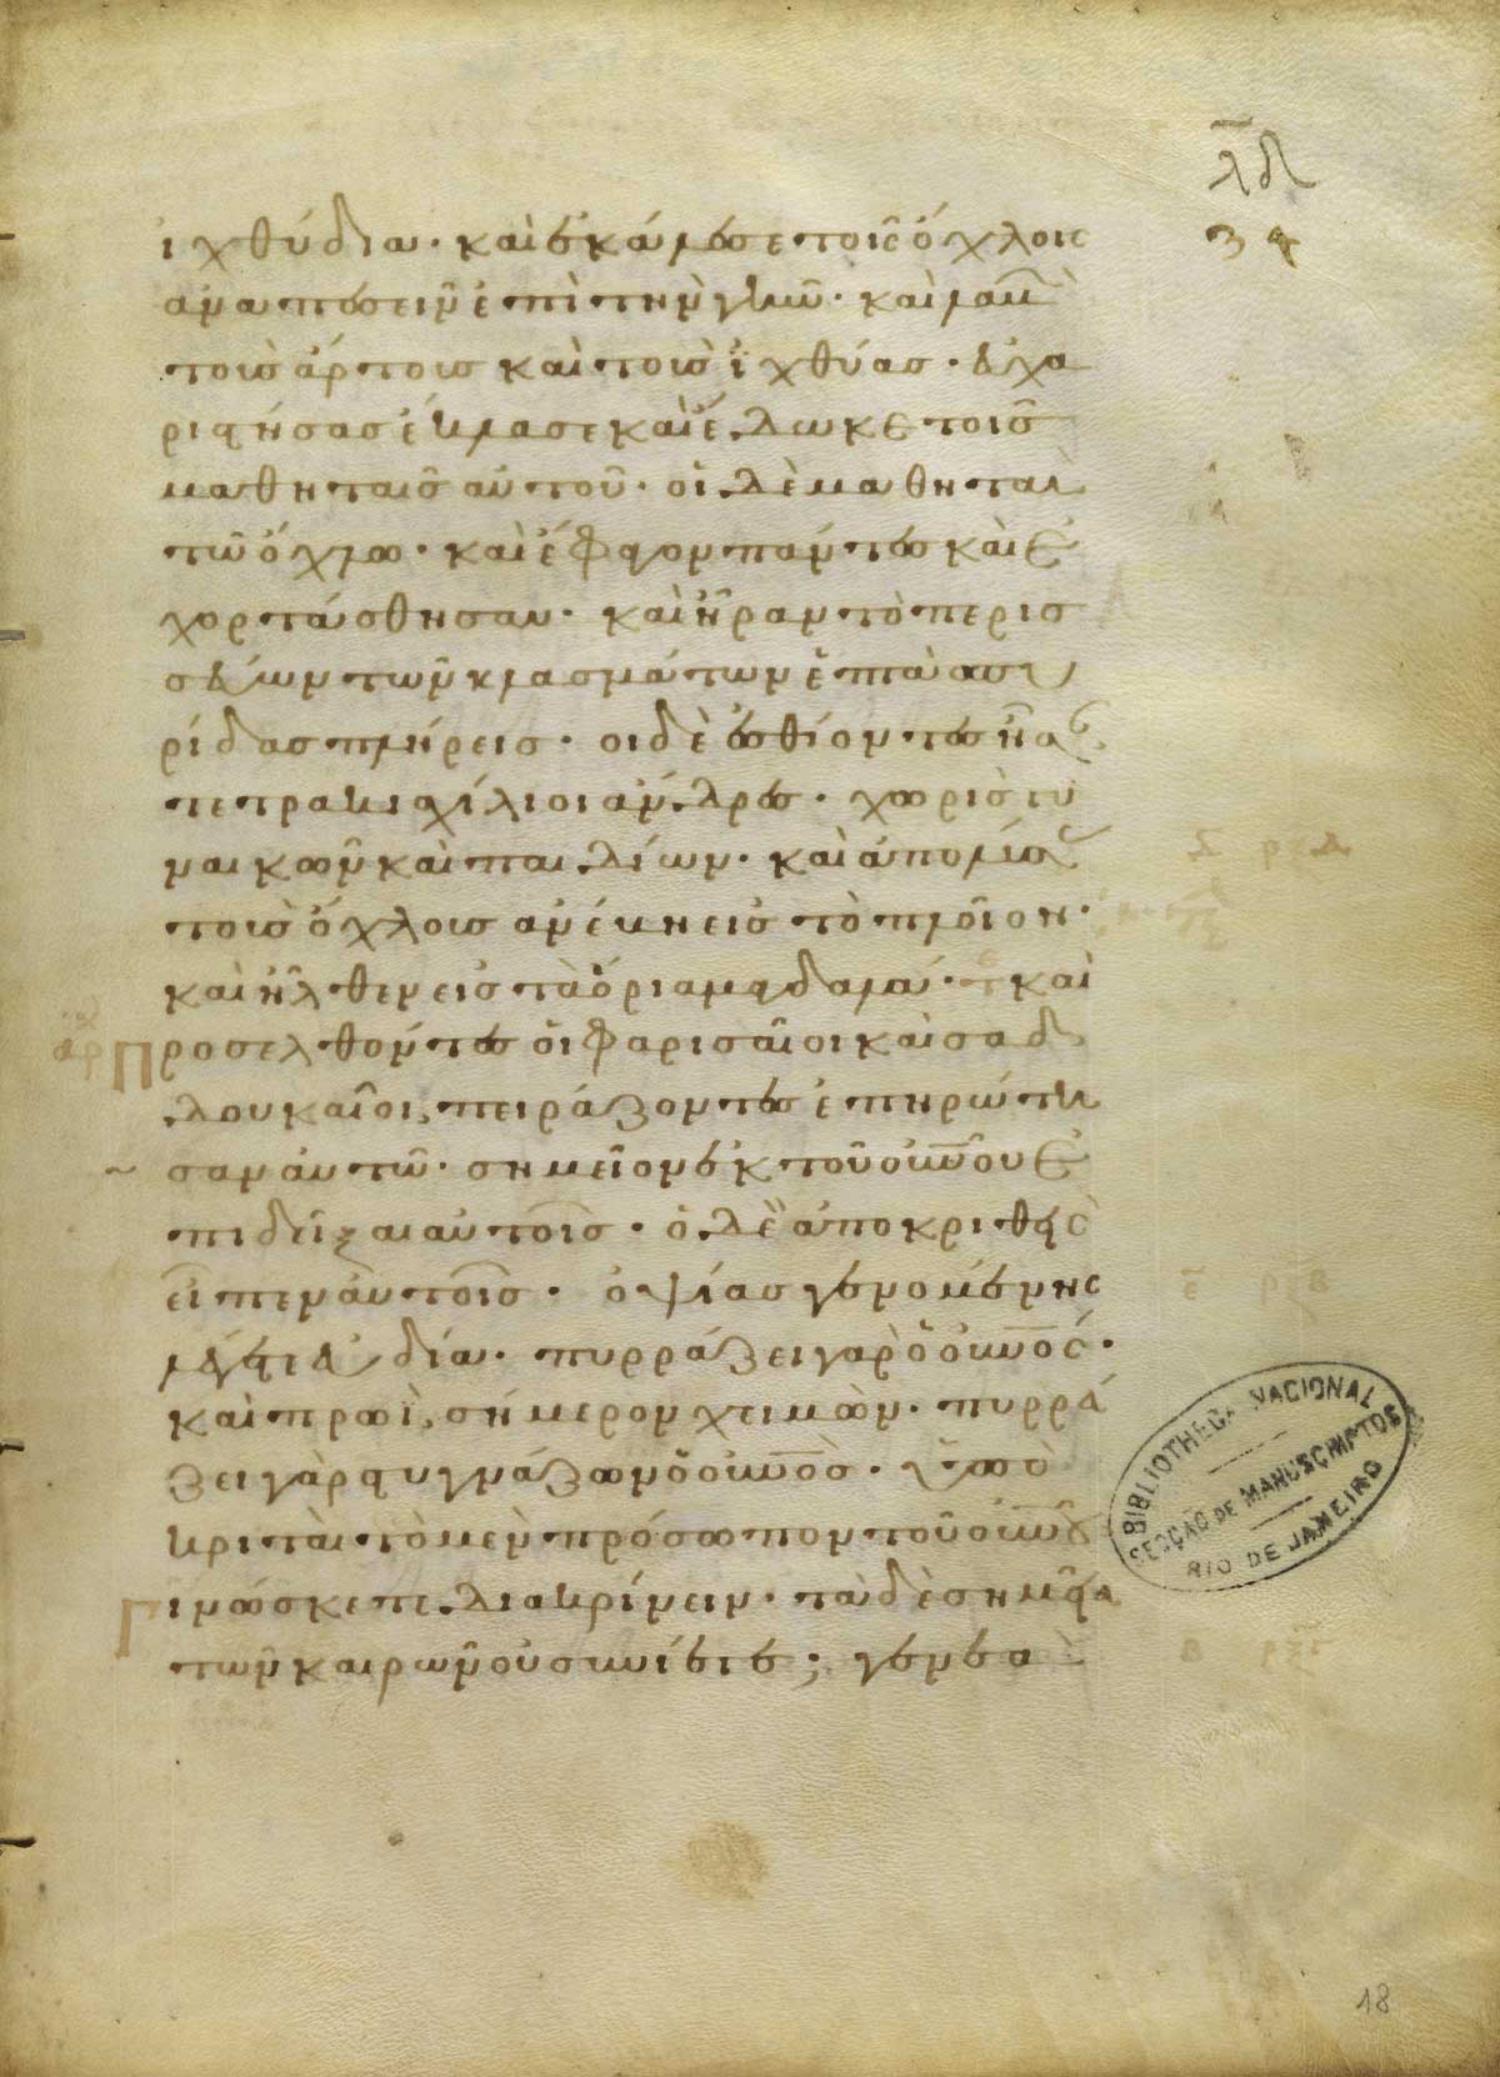 λδ
34
ἰχθύδια· καὶ ἐκέλευσε τοῖς ὄχλοις
ἀναπεσεῖν ἐπὶ τὴν γῆν· καὶ λαβὼν
τοὺς ἄρτους καὶ τοὺς ἰχθύας· εὐχα
ριστήσας ἔκλασε καὶ ἔδωκε τοῖς
μαθηταῖς αὐτοῦ· οἱ δὲ μαθηταὶ
τῶ ὄχλω· καὶ ἔφαγον πάντες καὶ ἐ
χορτάσθησαν· καὶ ἦραν τὸ περισ
σεύων τῶν κλασμάτων ἑπτὰ σπυ
ρίδας πλήρεις· οἱ δὲ ἐσθίοντες ἦσαν
τετρακισχίλιοι ἄνδρες· χωρὶς γυ
ναικῶν καὶ παιδίων· καὶ ἀπολύσας
τοὺς ὄχλους ἀνέβη εἰς τὸ πλοῖον·
καὶ ἦλθεν εἰς τὰ ὅρια μαγδαλά· καὶ
Προσελθόντες οἱ φαρισαῖοι καὶ σαδ
δουκαῖοι, πειράζοντες ἐπηρώτη
σαν αὐτῶ· σημεῖον ἐκ τοῦ οὐνοῦ ἐ
πιδεῖξαι αὐτοῖς· ὁ δὲ ἀποκριθεὶς
εἶπεν αὐτοῖς· ὀψίας γενομένης
λέγεται εὐδία· πυρράζει γὰρ ὁ οὐνος·
καὶ πρωῒ, σήμερον χειμὼν· πυρρά
ζει γὰρ στυγνάζων ὁ οὐνος· ὑπο
κριταὶ τὸ μὲν πρόσωπον τοῦ οὐνοῦ
Γινώσκετε διακρίνειν· τὰ δὲ σημεῖα
τῶν καιρῶν οὐ συνίετε; γενεὰ
BIBLIOTHECA NACIONAL
SECÇÃO DE MANUSCRIPTOS
RIO DE JANEIRO
18